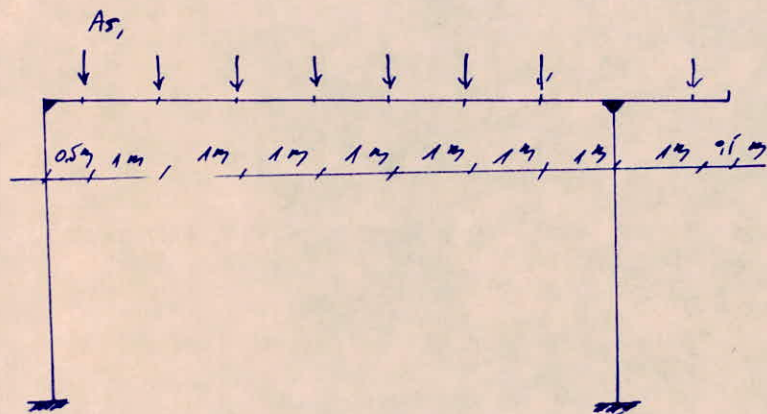 As,
0,5m 1m 1m 1m 1m 1m 1m 1m 1m 0,5 m